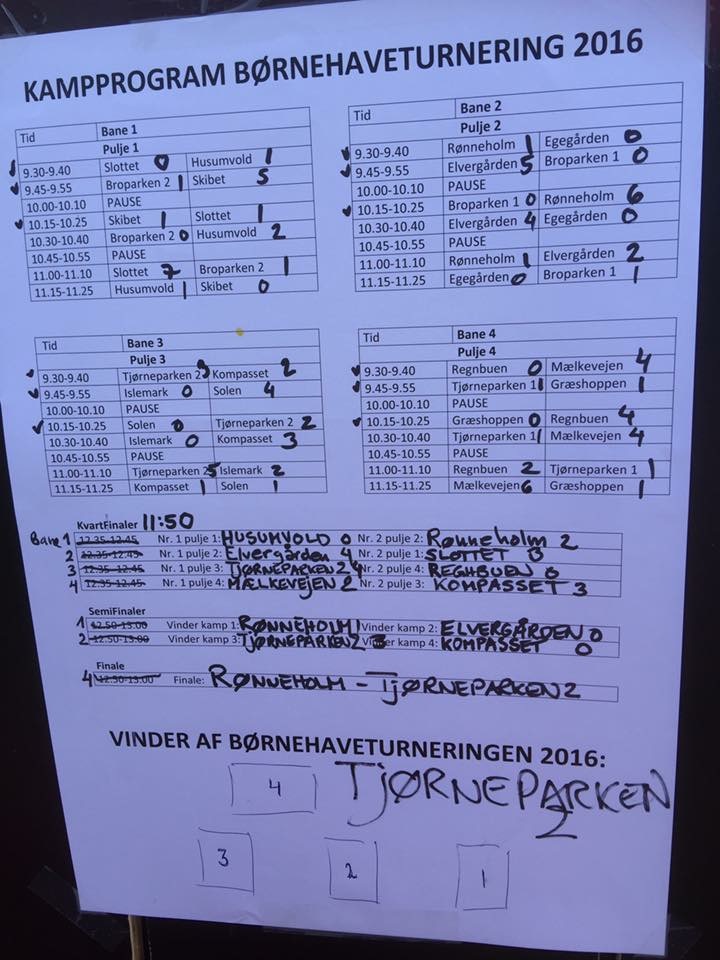 KAMPPROGRAM BØRNEHAVETURNERING 2016
Tid Bane 1
Pulje 1
9.30-9.40 Slottet 0 Husumvold 1
9.45-9.55 Broparken 2 1 Skibet 5
10.00-10.10 PAUSE
10.15-10.25 Skibet 1 Slottet 1
10.30-10.40 Broparken 2 0 Husumvold 2
10.45-10.55 PAUSE
11.00-11.10 Slottet 7 Broparken 2 1
11.15-11.25 Husumvold 1 Skibet 0
Tid Bane 2
Pulje 2
9.30-9.40 Rønneholm 1 Egegården 0
9.45-9.55 Elvergården 5 Broparken 1 0
10.00-10.10 PAUSE
10.15-10.25 Broparken 1 0 Rønneholm 6
10.30-10.40 Elvergården 4 Egegården 0
10.45-10.55 PAUSE
11.00-11.10 Rønneholm 1 Elvergården 2
11.15-11.25 Egegården 0 Broparken 1 1
Tid Bane 3
Pulje 3
9.30-9.40 Tjørneparken 2 Kompasset 2
9.45-9.55 Islemark 0 Solen 4
10.00-10.10 PAUSE
10.15-10.25 Solen 0 Tjørneparken 2 2
10.30-10.40 Islemark 0 Kompasset 3
10.45-10.55 PAUSE
11.00-11.10 Tjørneparken 2 5 Islemark 2
11.15-11.25 Kompasset 1 Solen 1
Tid Bane 4
Pulje 4
9.30-9.40 Regnbuen 0 Mælkevejen 4
9.45-9.55 Tjørneparken 1 1 Græshoppen 1
10.00-10.10 PAUSE
10.15-10.25 Græshoppen 0 Regnbuen 4
10.30-10.40 Tjørneparken 1 1 Mælkevejen 4
10.45-10.55 PAUSE
11.00-11.10 Regnbuen 2 Tjørneparken 1 1
11.15-11.25 Mælkevejen 6 Græshoppen 1
KvartFinaler 11:50
Bane 1 12.35-12.45 Nr. 1 pulje 1: HUSUMVOLD 0 Nr. 2 pulje 2: Rønneholm 2
2 12.35-12.45 Nr. 1 pulje 2: Elvergården 4 Nr. 2 pulje 1: SLOTTET 0
3 12.35-12.45 Nr. 1 pulje 3: TJØRNEPARKEN 2 4 Nr. 2 pulje 4: REGHBUEN 0
4 12.35-12.45 Nr. 1 pulje 4: MÆLKEVEJEN 2 Nr. 2 pulje 3: KOMPASSET 3
SemiFinaler
1 12.50-13.00 Vinder kamp 1: RØNNEHOLM 1 Vinder kamp 2: ELVERGÅRDEN 0
2 12.50-13.00 Vinder kamp 3: TJØRNEPARKEN 2 Vinder kamp 4: KOMPASSET 0
Finale
4 12.50-13.00 Finale: RØNNEHOLM - TJØRNEPARKEN 2
VINDER AF BØRNEHAVETURNERINGEN 2016:
4 TJØRNEPARKEN
2
3 2 1